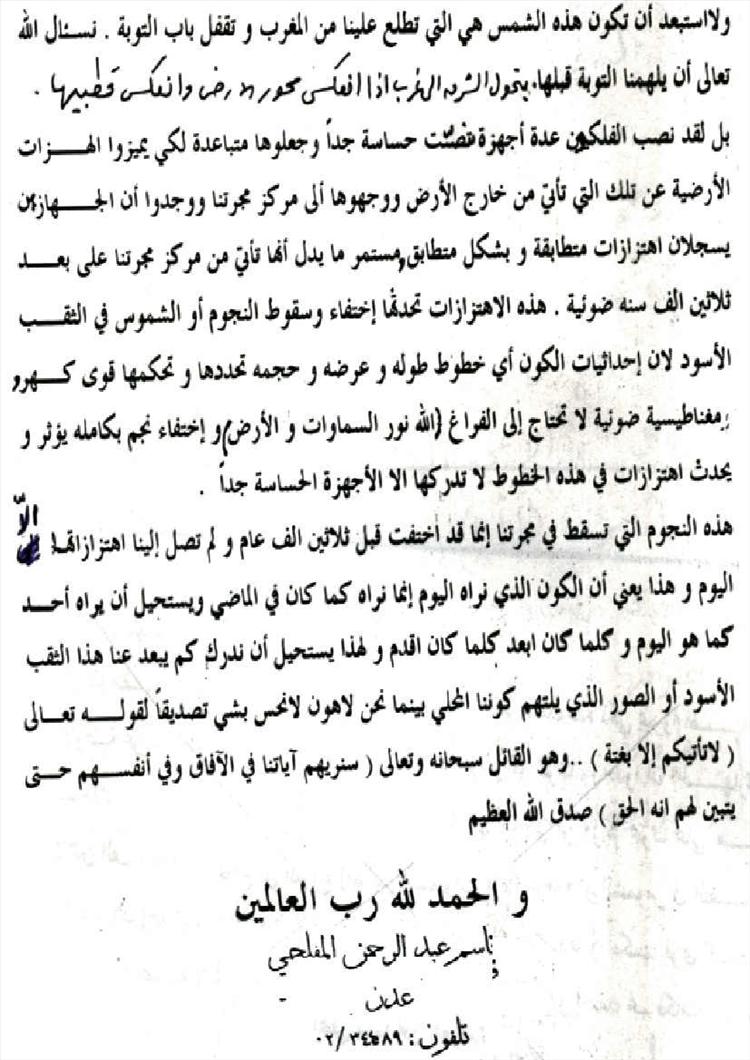 ولااستبعد أن تكون هذه الشمس هي التي تطلع علينا من المغرب و تقفل باب التوبة . نسئال الله
تعالى أن يلهمنا التوبة قبلها. يتحول الشرق الى غرب اذا انعكس محور الارض وانعكس قطبيها .
بل لقد نصب الفلكين عدة أجهزة تنصّت حساسة جداً وجعلوها متباعدة لكي يميزوا الهزات
الأرضية عن تلك التي تأتي من خارج الأرض ووجهوها ألى مركز مجرتنا ووجدوا أن الجهازين
يسجلان اهتزازات متطابقة و بشكل متطابق ومستمر ما يدل أنها تأتي من مركز مجرتنا على بعد
ثلاثين الف سنه ضوئية . هذه الاهتزازات تحدثها إختفاء وسقوط النجوم أو الشموس في الثقب
الأسود لان إحداثيات الكون أي خطوط طوله و عرضه و حجمه تحددها و تحكمها قوى كهرو
مغناطيسية ضوئية لا تحتاج إلى الفراغ (الله نور السماوات و الأرض) و إختفاء نجم بكامله يؤثر و
يحدث اهتزازات في هذه الخطوط لا تدركها الا الأجهزة الحساسة جداً .
هذه النجوم التي تسقط في مجرتنا إنما قد أختفت قبل ثلاثين الف عام و لم تصل إلينا اهتزازاتها إلاّ
اليوم و هذا يعني أن الكون الذي نراه اليوم إنما نراه كما كان في الماضي ويستحيل أن يراه أحد
كما هو اليوم و كلما كان ابعد كلما كان اقدم و لهذا يستحيل أن ندرك كم يبعد عنا هذا الثقب
الأسود أو الصور الذي يلتهم كوننا المحلي بينما نحن لاهون لانحس بشي تصديقاً لقوله تعالى
( لاتأتيكم إلا بغتة ) ..وهو القائل سبحانه وتعالى ( سنريهم آياتنا في الآفاق وفي أنفسهم حتى
يتبين لهم انه الحق ) صدق الله العظيم
و الحمد لله رب العالمين
باسم عبد الرحمن المفلحي
عدن -
تلفون : ٠٢/٣٤٥٨٩